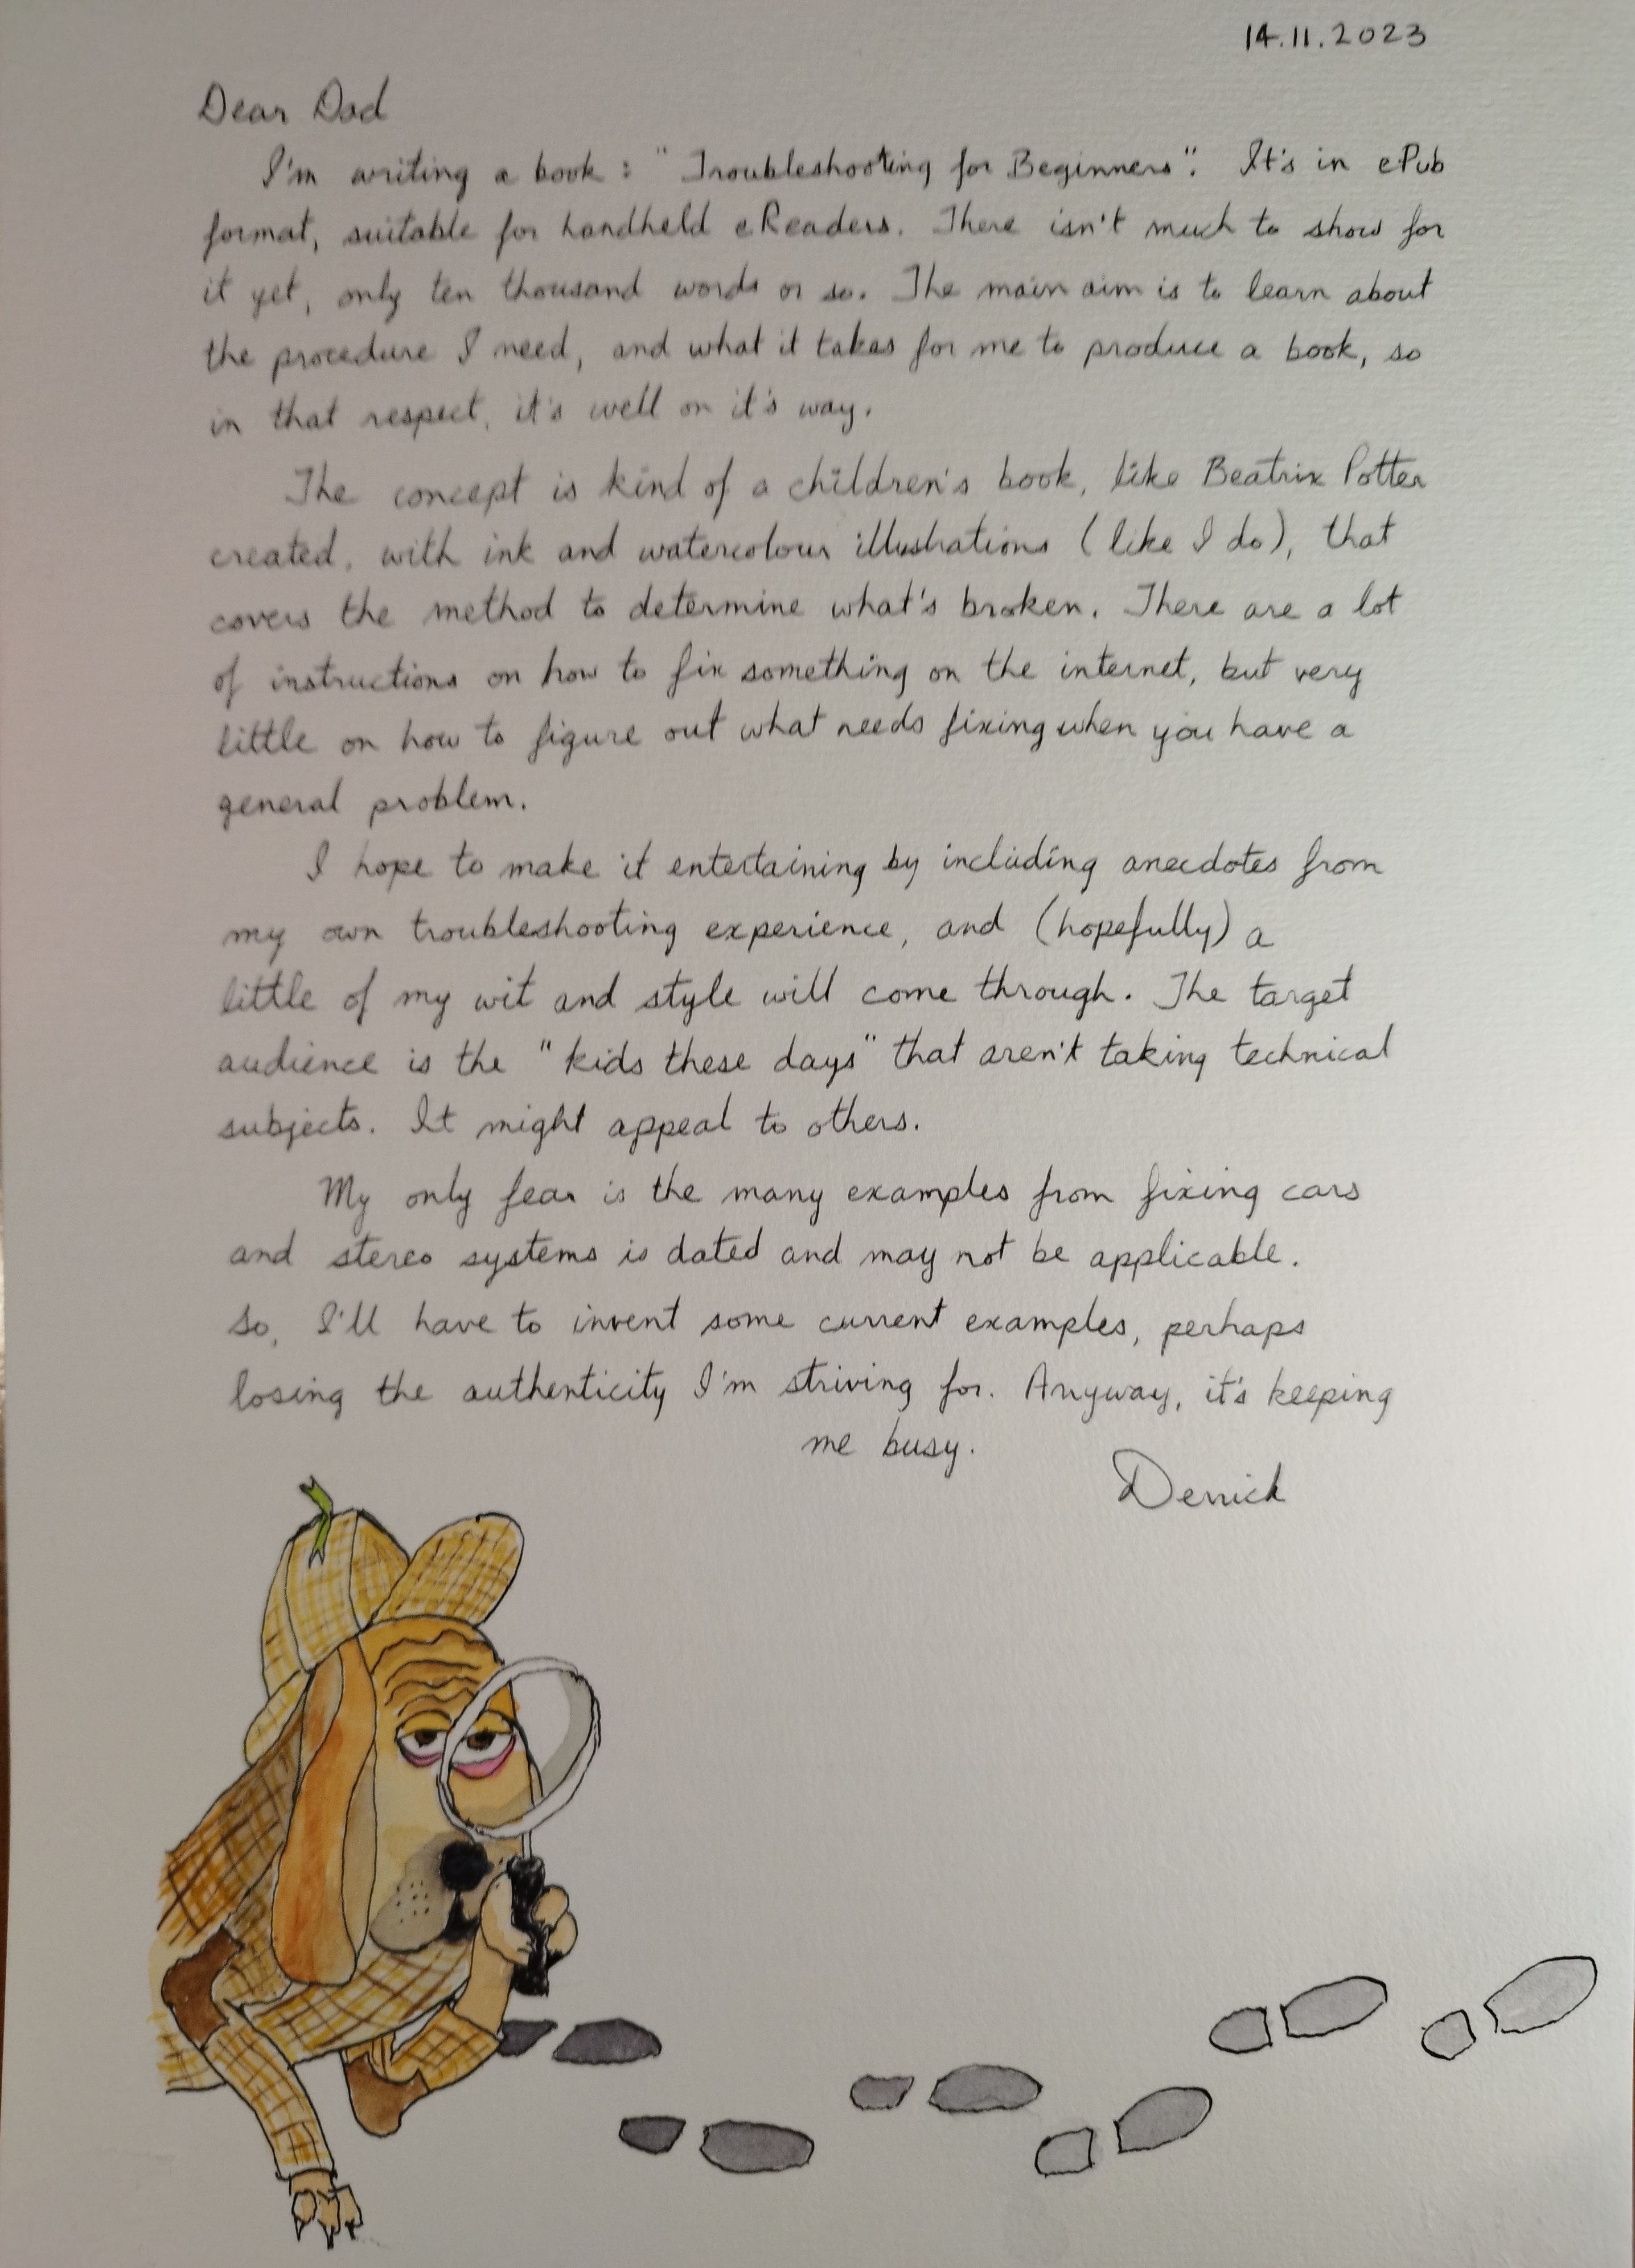 14.11.2023
Dear Dad
I'm writing a book : "Troubleshooting for Beginners". It's in ePub
format, suitable for handheld eReaders. There isn't much to show for
it yet, only ten thousand words or so. The main aim is to learn about
the procedure I need, and what it takes for me to produce a book, so
in that respect, it's well on it's way.
The concept is kind of a children's book, like Beatrix Potter
created, with ink and watercolour illustrations (like I do), that
covers the method to determine what's broken. There are a lot
of instructions on how to fix something on the internet, but very
little on how to figure out what needs fixing when you have a
general problem.
I hope to make it entertaining by including anecdotes from
my own troubleshooting experience, and (hopefully) a
little of my wit and style will come through. The target
audience is the "kids these days" that aren't taking technical
subjects. It might appeal to others.
My only fear is the many examples from fixing cars
and stereo systems is dated and may not be applicable.
So, I'll have to invent some current examples, perhaps
losing the authenticity I'm striving for. Anyway, it's keeping
me busy.
Derrick